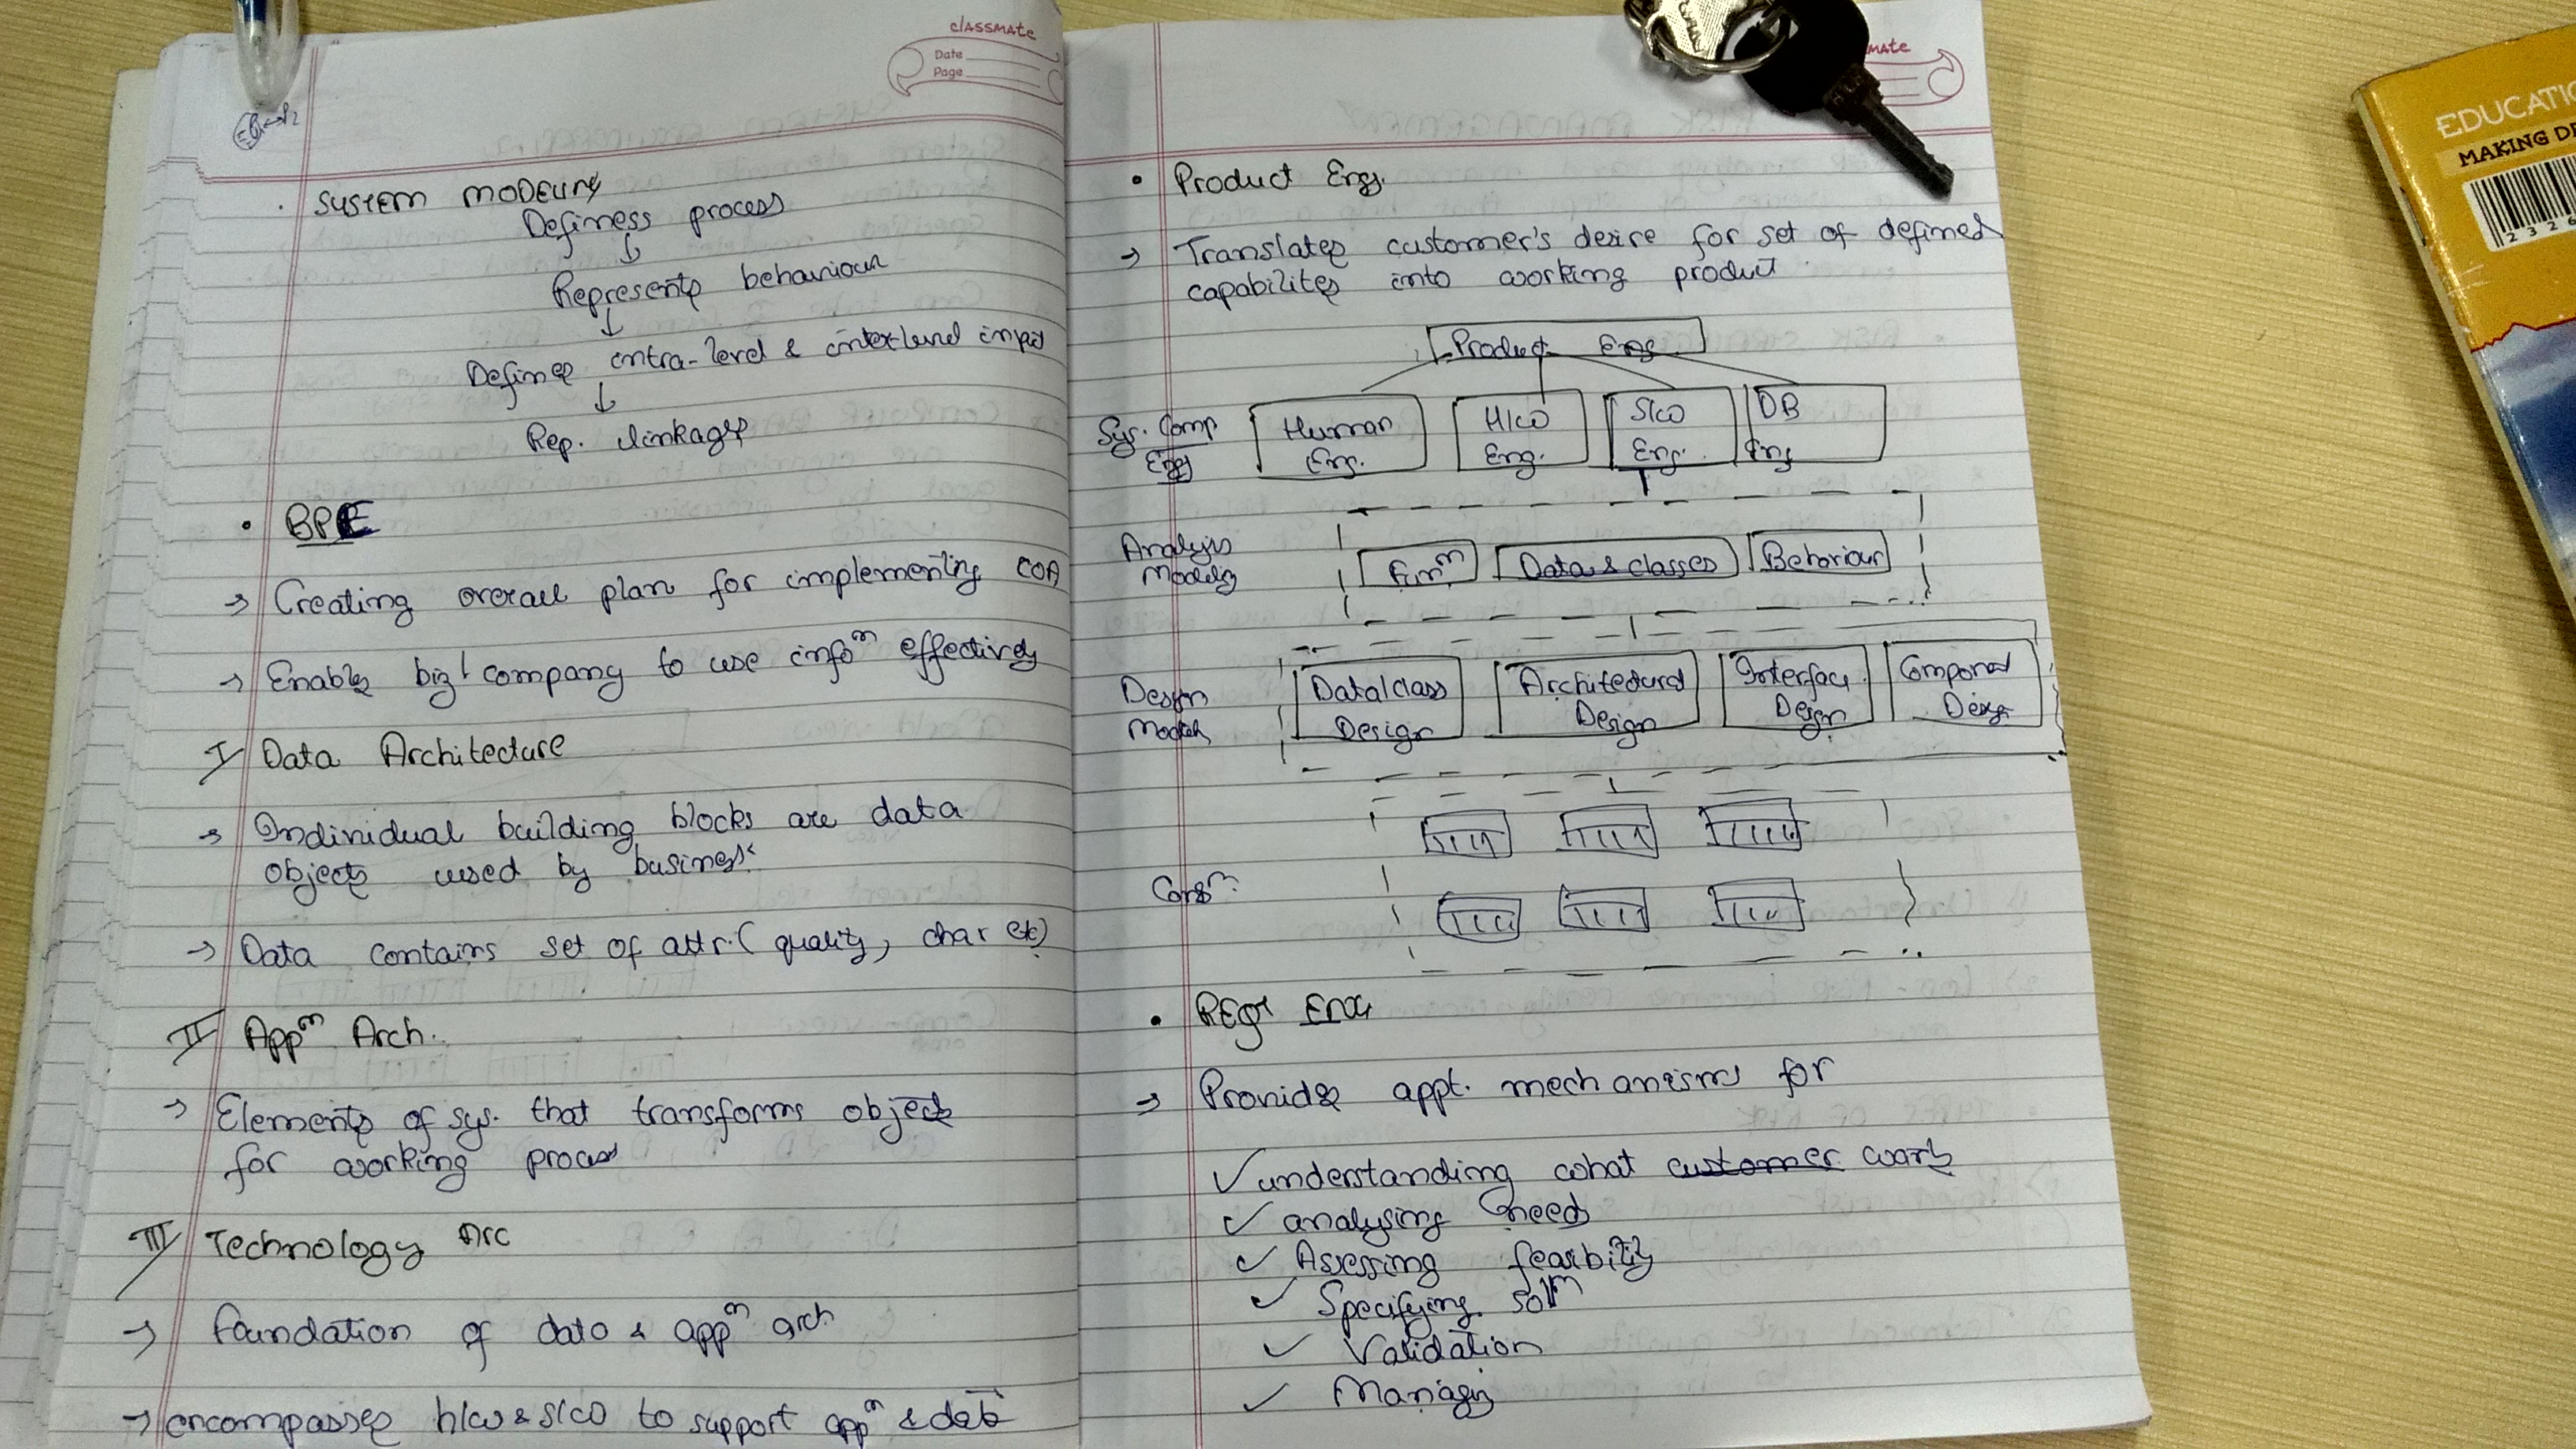 classmate
Date
Page
SYSTEM MODELING
Definess process
↓
Represents behaviour
↓
Defines intra-level & interlevel input
↓
Rep. linkages
• BPE
→ Creating overall plan for implementing COA
→ Enables biz/company to use infoⁿ effectively
I Data Architecture
→ Individual building blocks are data
objects used by business
→ Data contains set of attr. (quality, char etc)
II Appⁿ Arch.
→ Elements of sys. that transforms objects
for working process
III Technology Arc
→ foundation of data & appⁿ arch
→ encompasses h/w & s/w to support appⁿ & data
MATE
• Product Eng.
→ Translates customer's desire for set of defined
capabilites into working product
Product Eng.
Sys. Comp Eng
Human Eng.
H/W Eng.
S/W Eng.
DB Eng
Analysis Modelig
Funⁿ
Data & classes
Behaviour
Design Models
Data/class Design
Architectural Design
Interface Design
Component Design
Consⁿ.
• REQT ENG
→ Provides appt. mechanisms for
✓ understanding what customer wants
✓ analysing need
✓ Assessing feasibility
✓ Specifying solⁿ
✓ Validation
✓ Managig
EDUCATIO
MAKING DE
2 3 2 6